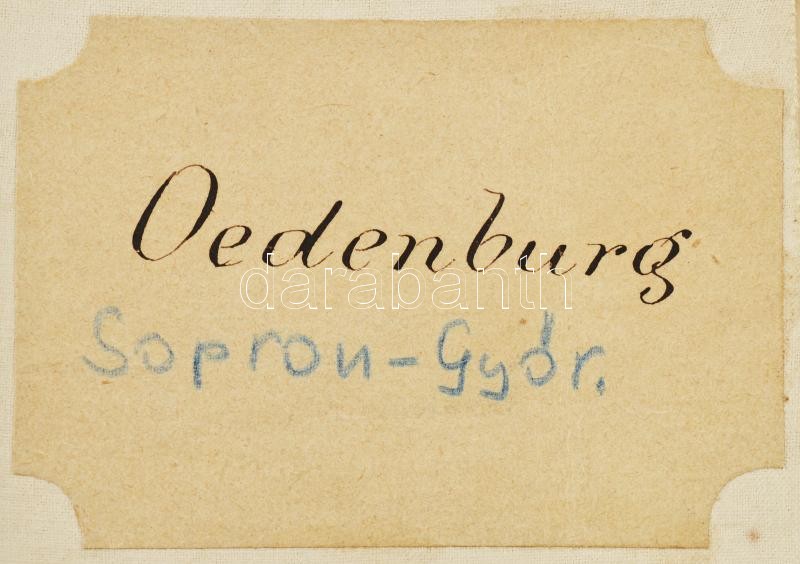 Oedenburg
darabanth
Sopron-Győr.